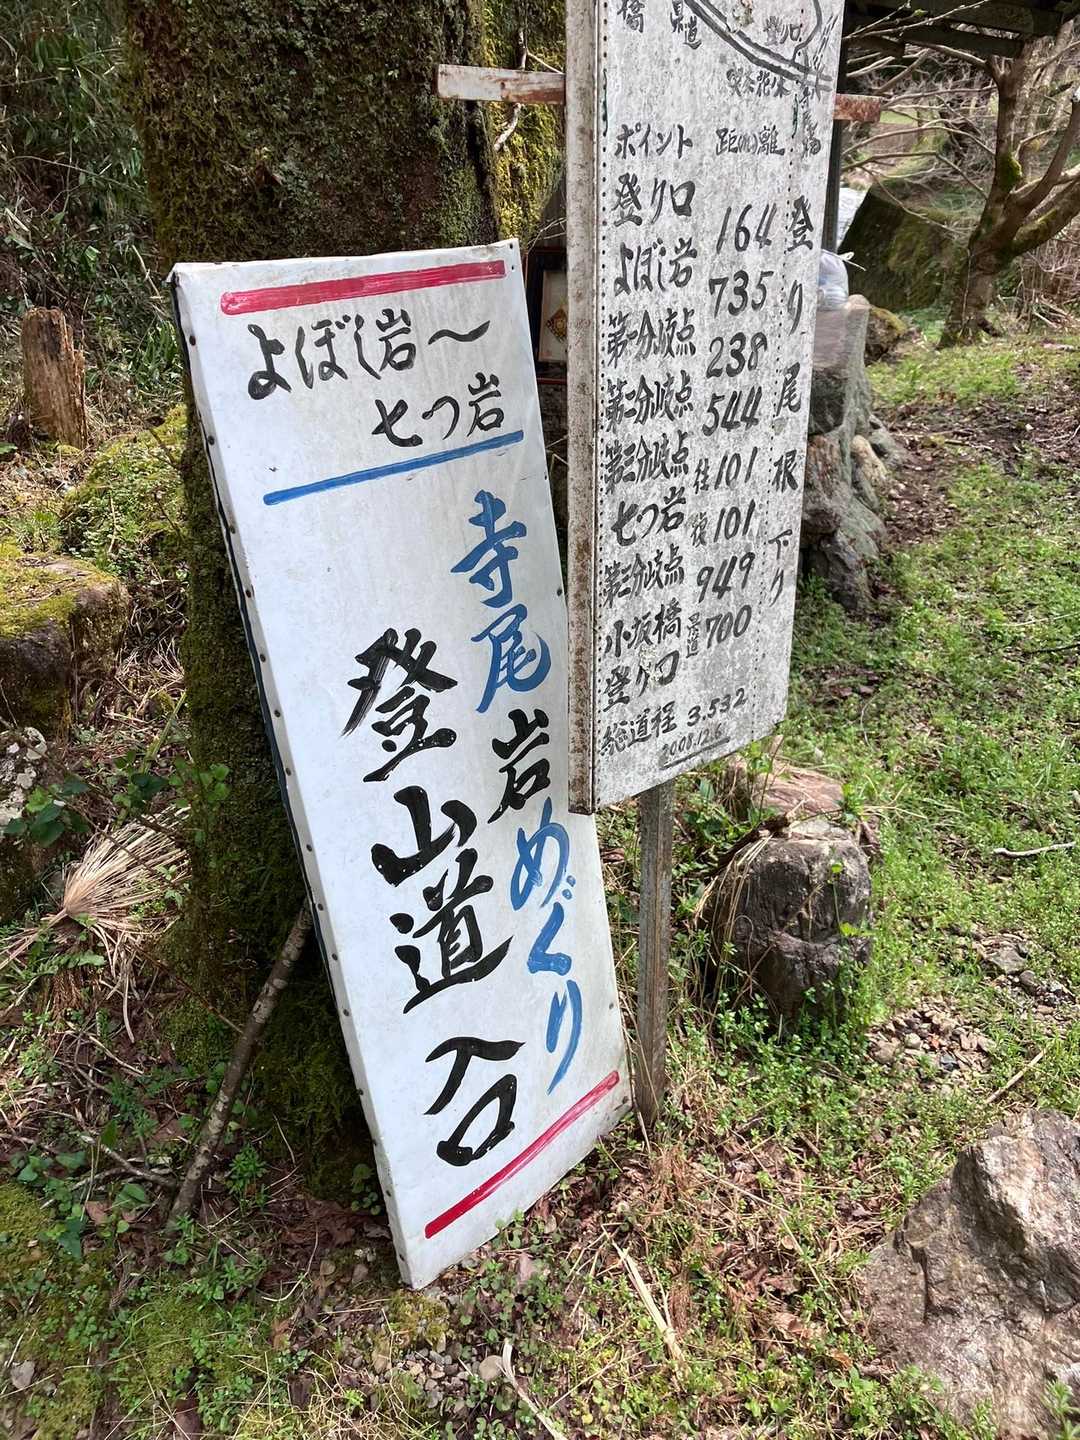 よぼし岩〜
七つ岩
寺尾岩めぐり
登山道入口
橋
県道
登り口
ポイント 距(m)離
登り口
164
よぼし岩
735
第一分岐点
238
第二分岐点
544
第三分岐点
往101
七つ岩
復101
第三分岐点
949
小坂橋
県道700
登り口
総道程 3.532
2008.12.6
登り 尾根 下り